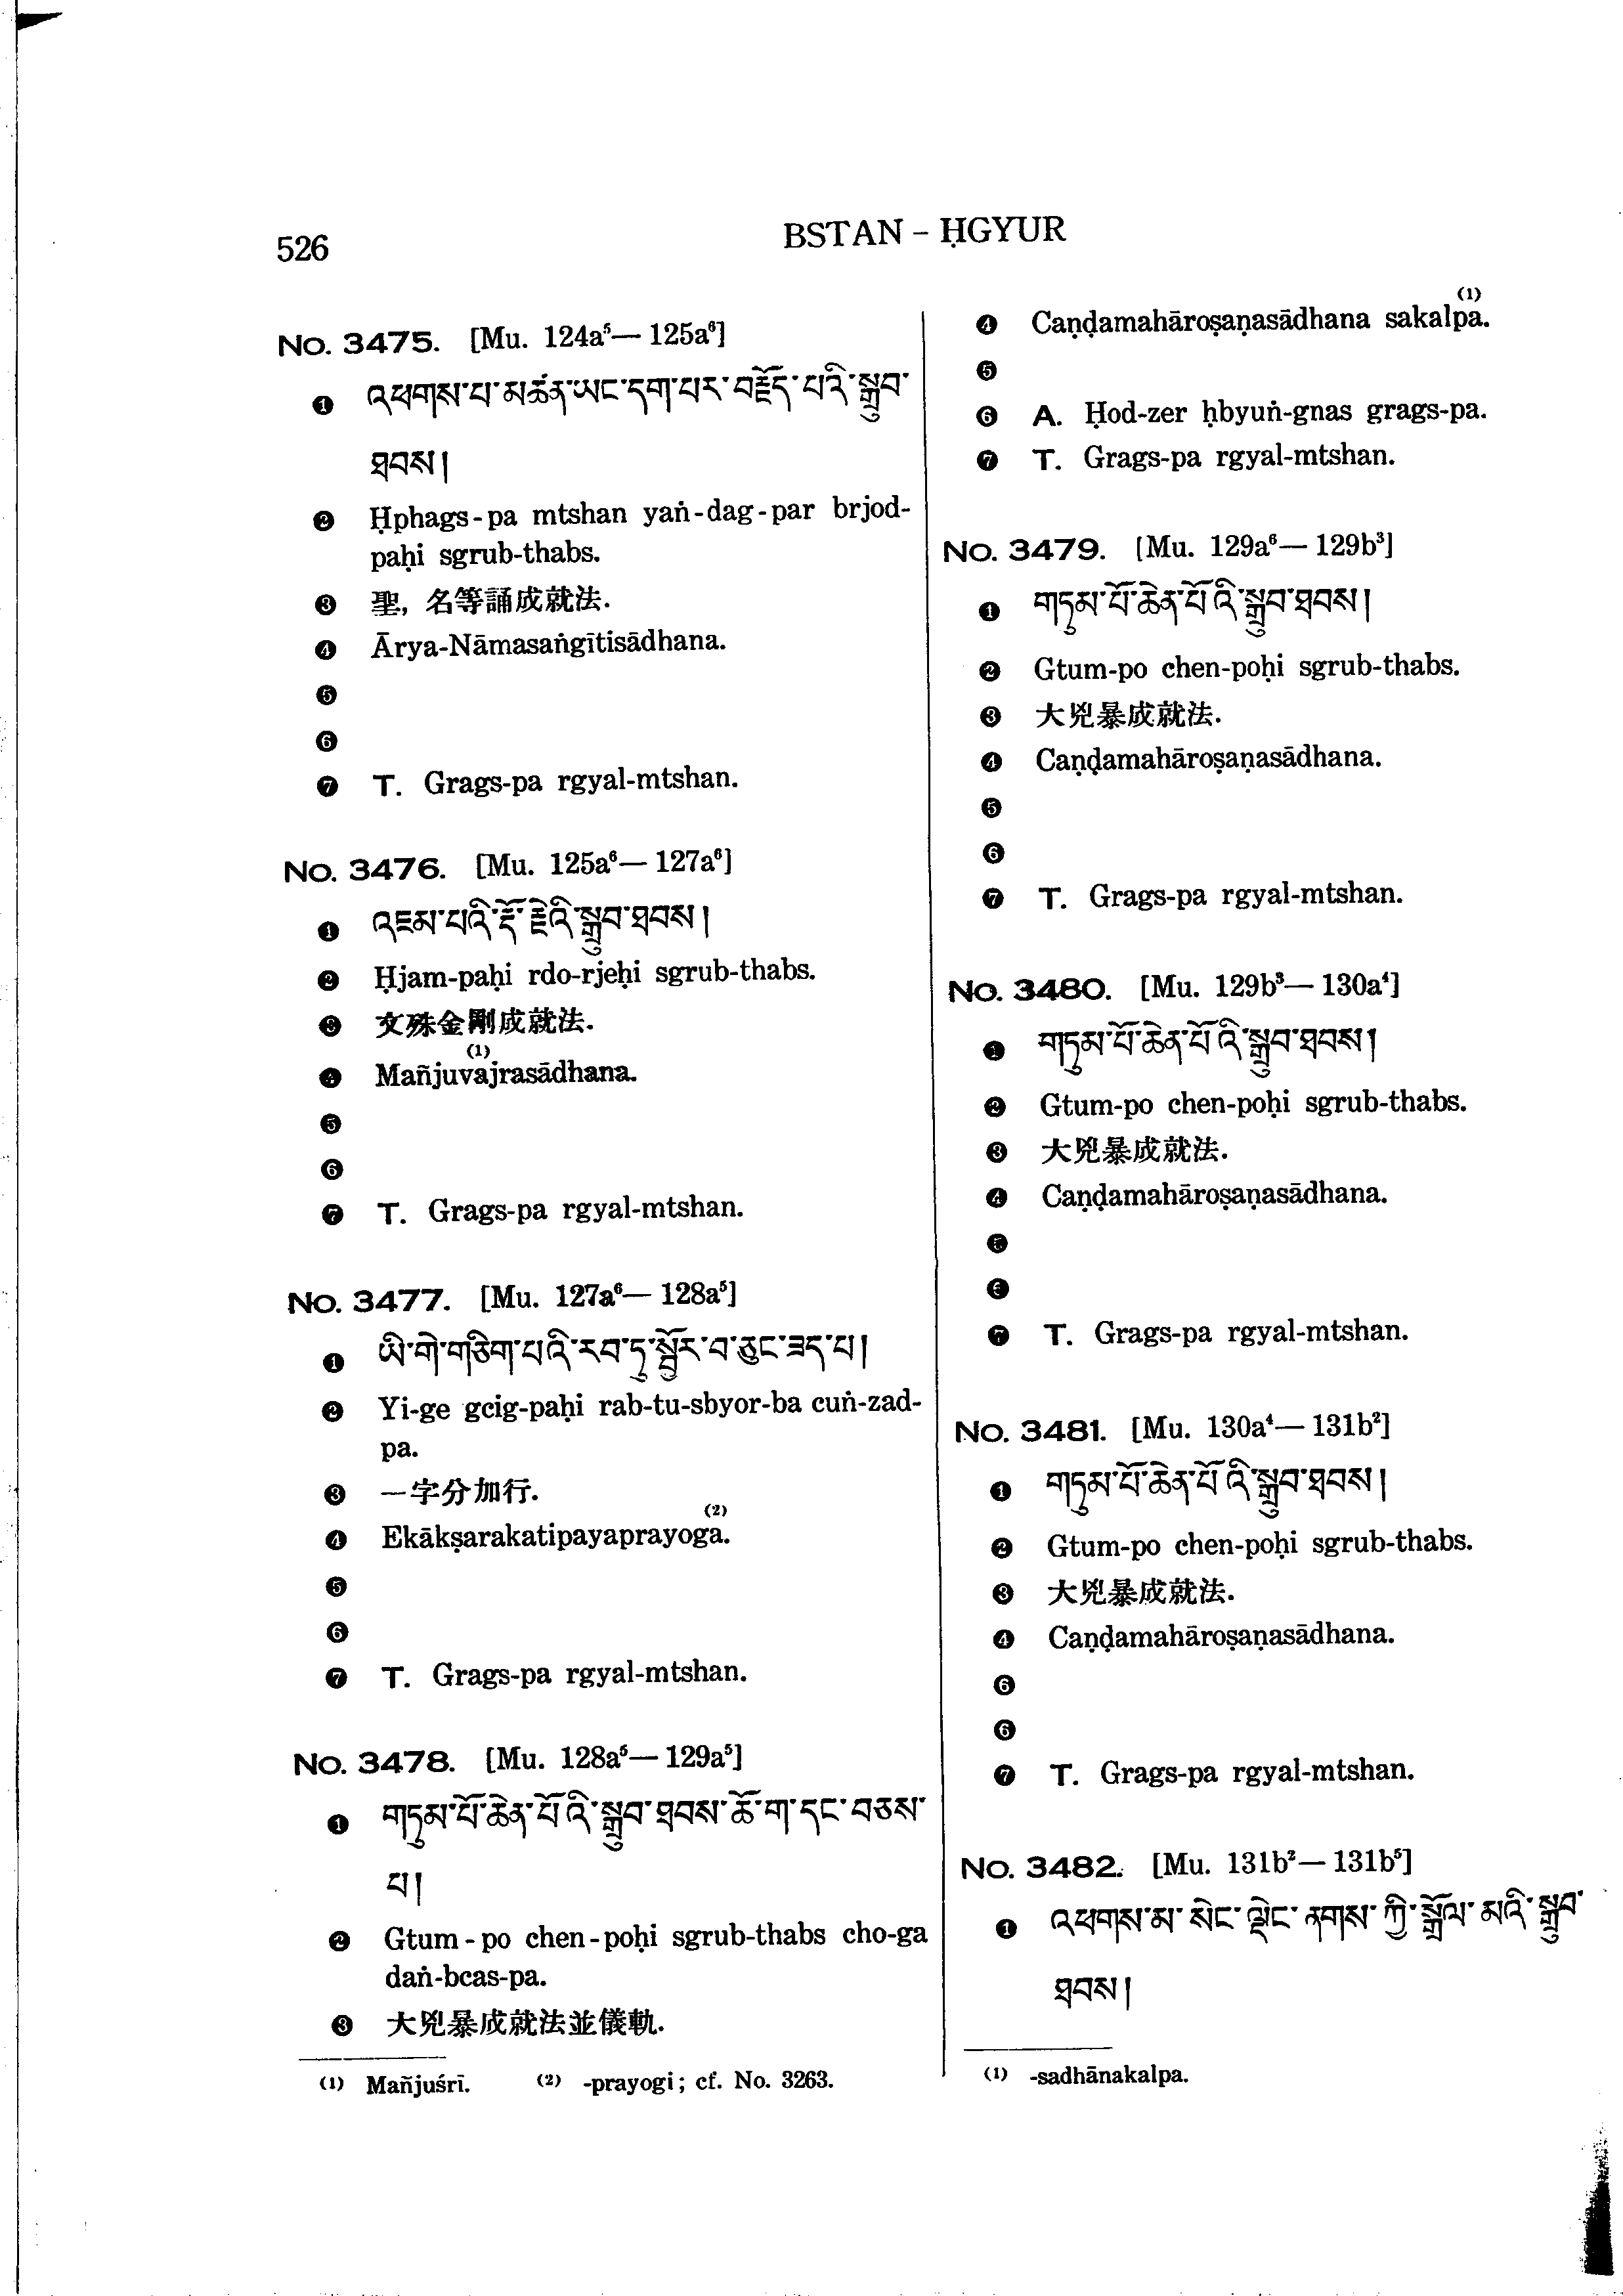 526
BSTAN – ḤGYUR
No. 3475. [Mu. 124a⁵— 125a⁶]
❶ འཕགས་པ་མཚན་ཡང་དག་པར་བརྗོད་པའི་སྒྲུབ་
ཐབས།
❷ Ḥphags-pa mtshan yaṅ-dag-par brjod-
paḥi sgrub-thabs.
❸ 聖, 名等誦成就法.
❹ Ārya-Nāmasaṅgītisādhana.
❺
❻
❼ T. Grags-pa rgyal-mtshan.
No. 3476. [Mu. 125a⁶— 127a⁶]
❶ འཇམ་པའི་རྡོ་རྗེའི་སྒྲུབ་ཐབས།
❷ Ḥjam-paḥi rdo-rjeḥi sgrub-thabs.
❸ 文殊金剛成就法.
❹ Mañjuvajrasādhana.⁽¹⁾
❺
❻
❼ T. Grags-pa rgyal-mtshan.
No. 3477. [Mu. 127a⁶— 128a⁵]
❶ ཡི་གེ་གཅིག་པའི་རབ་ཏུ་སྦྱོར་བ་ཅུང་ཟད་པ།
❷ Yi-ge gcig-paḥi rab-tu-sbyor-ba cuṅ-zad-
pa.
❸ 一字分加行.
❹ Ekākṣarakatipayaprayoga.⁽²⁾
❺
❻
❼ T. Grags-pa rgyal-mtshan.
No. 3478. [Mu. 128a⁵— 129a⁵]
❶ གཏུམ་པོ་ཆེན་པོའི་སྒྲུབ་ཐབས་ཆོ་ག་དང་བཅས་
པ།
❷ Gtum-po chen-poḥi sgrub-thabs cho-ga
daṅ-bcas-pa.
❸ 大兇暴成就法並儀軌.
⁽¹⁾ Mañjuśrī. ⁽²⁾ -prayogi; cf. No. 3263.
❹ Caṇḍamahāroṣaṇasādhana sakalpa.⁽¹⁾
❺
❻ A. Ḥod-zer ḥbyuṅ-gnas grags-pa.
❼ T. Grags-pa rgyal-mtshan.
No. 3479. [Mu. 129a⁶— 129b³]
❶ གཏུམ་པོ་ཆེན་པོའི་སྒྲུབ་ཐབས།
❷ Gtum-po chen-poḥi sgrub-thabs.
❸ 大兇暴成就法.
❹ Caṇḍamahāroṣaṇasādhana.
❺
❻
❼ T. Grags-pa rgyal-mtshan.
No. 3480. [Mu. 129b³— 130a⁴]
❶ གཏུམ་པོ་ཆེན་པོའི་སྒྲུབ་ཐབས།
❷ Gtum-po chen-poḥi sgrub-thabs.
❸ 大兇暴成就法.
❹ Caṇḍamahāroṣaṇasādhana.
❺
❻
❼ T. Grags-pa rgyal-mtshan.
No. 3481. [Mu. 130a⁴— 131b²]
❶ གཏུམ་པོ་ཆེན་པོའི་སྒྲུབ་ཐབས།
❷ Gtum-po chen-poḥi sgrub-thabs.
❸ 大兇暴成就法.
❹ Caṇḍamahāroṣaṇasādhana.
❻
❻
❼ T. Grags-pa rgyal-mtshan.
No. 3482. [Mu. 131b²— 131b⁵]
❶ འཕགས་མ་སེང་ལྡེང་ནགས་ཀྱི་སྒྲོལ་མའི་སྒྲུབ་
ཐབས།
⁽¹⁾ -sadhānakalpa.